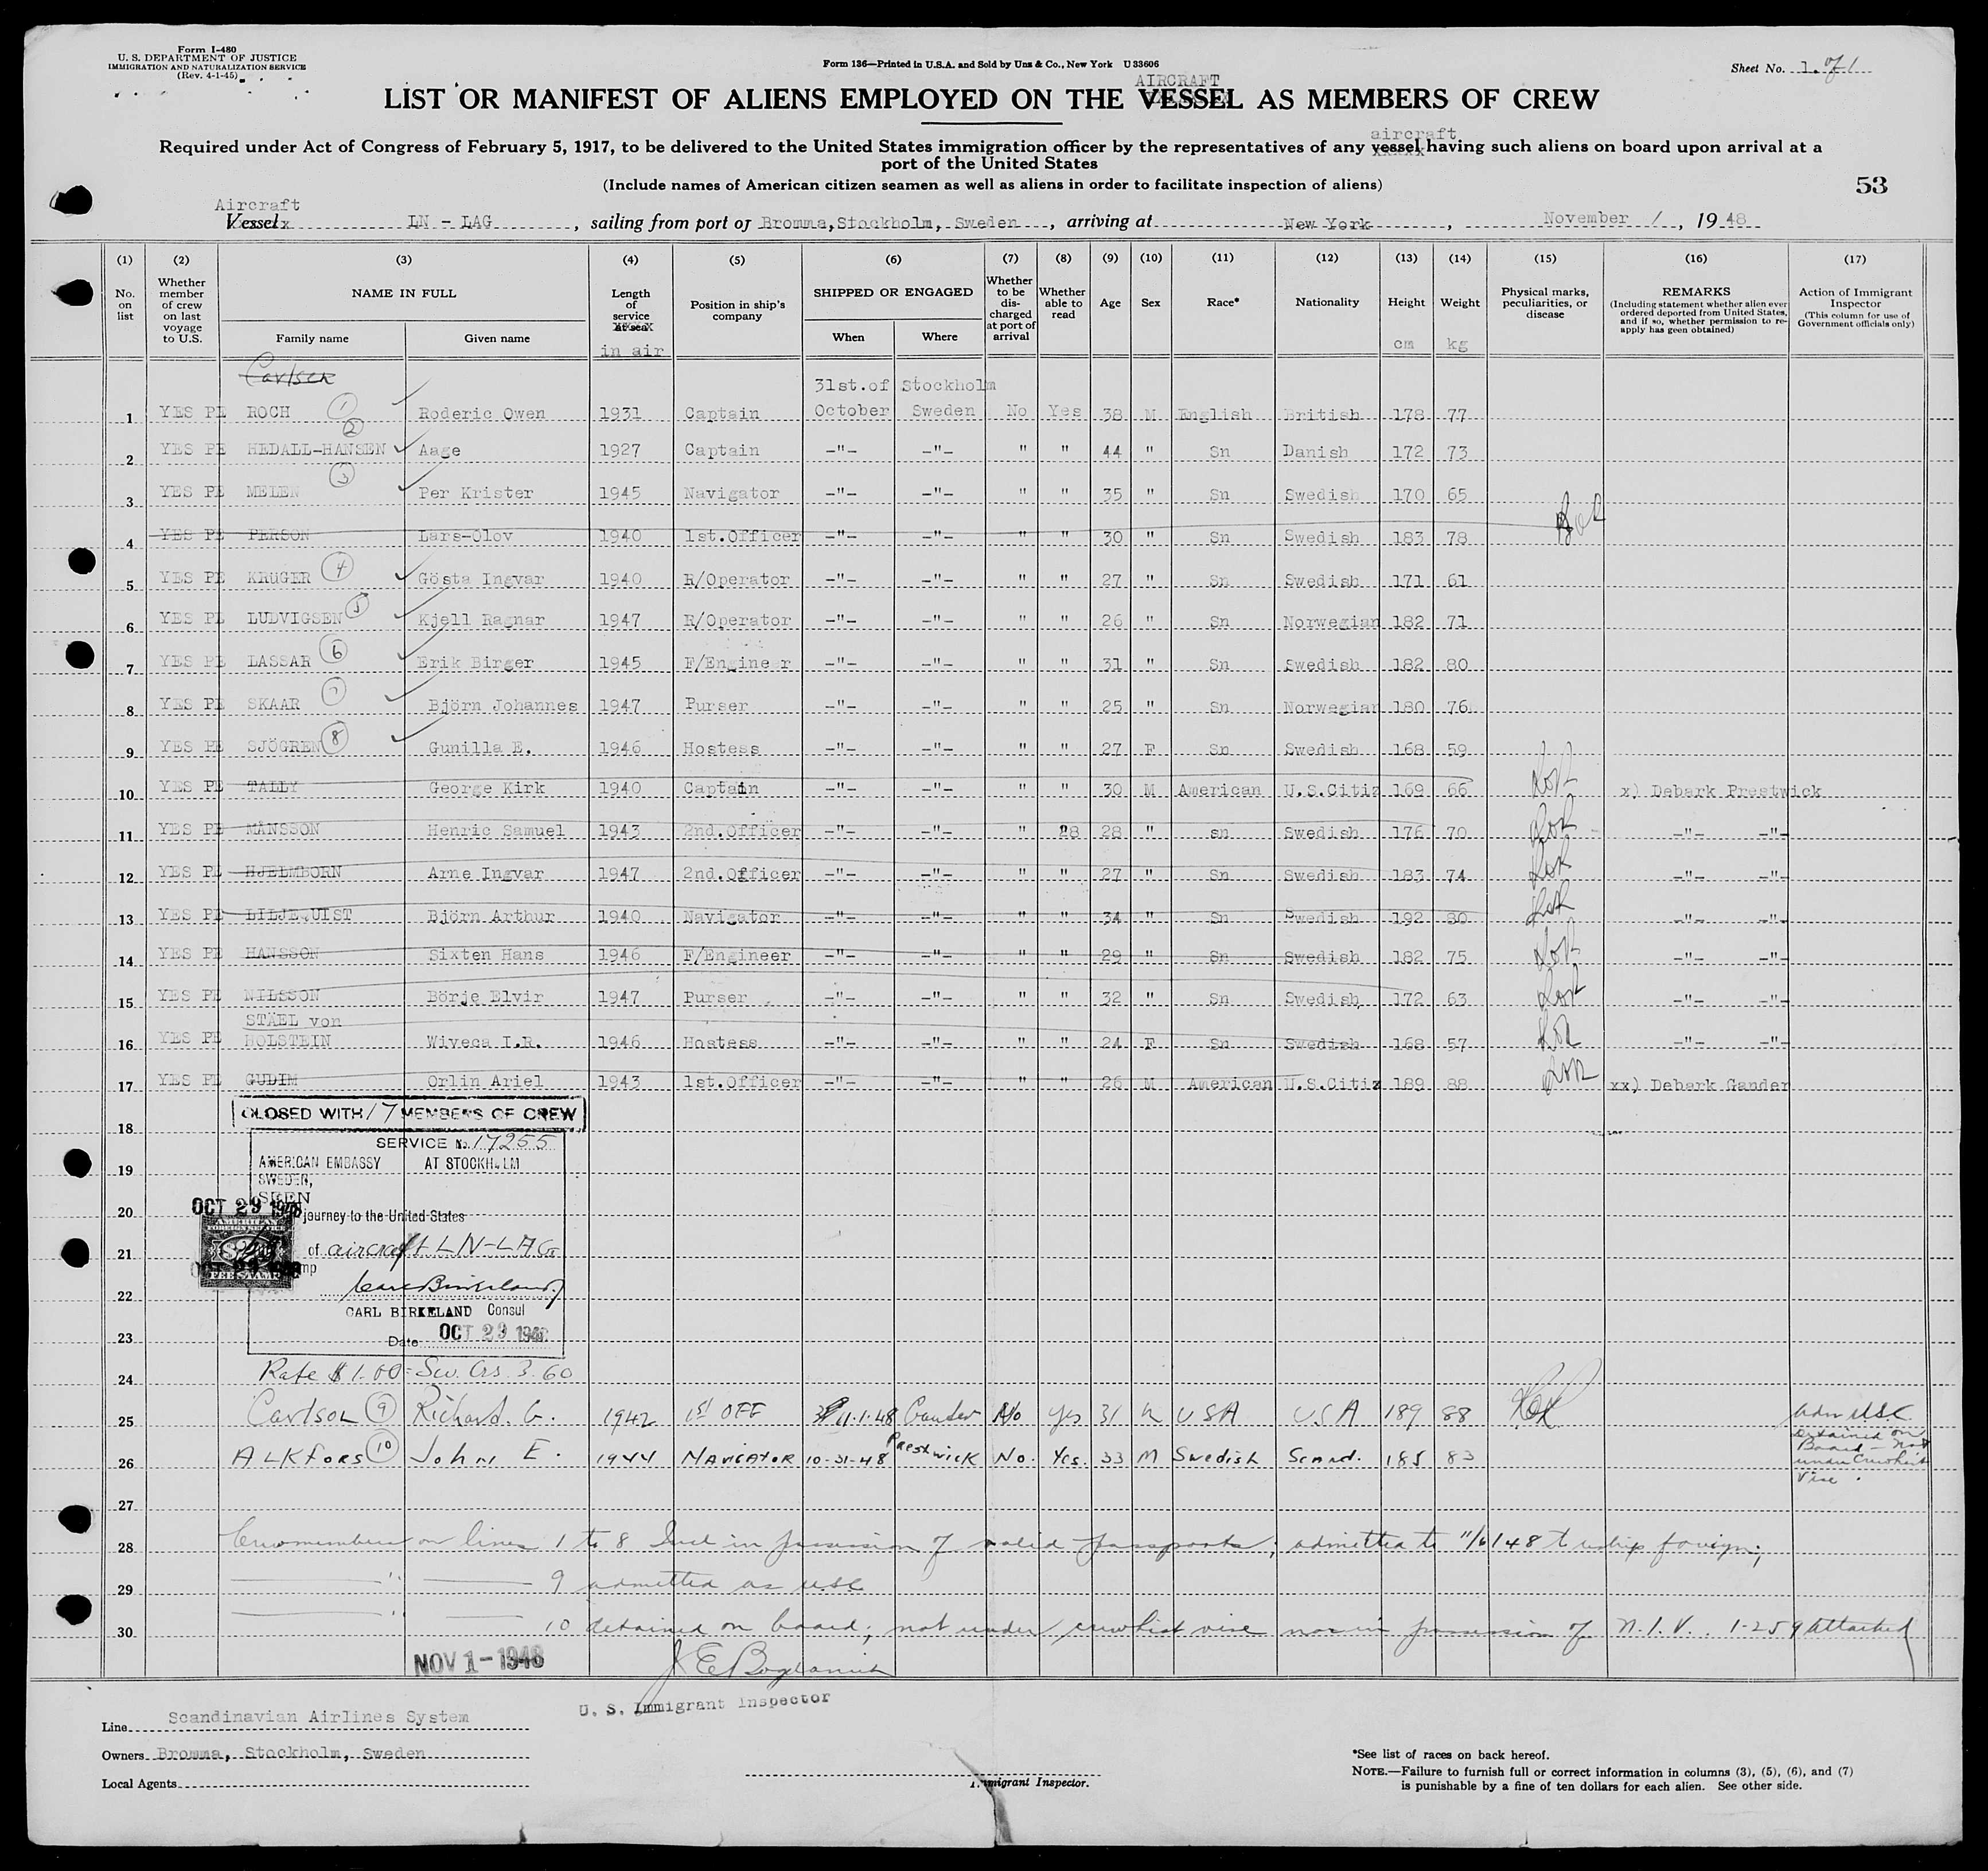 Form I-480
U. S. DEPARTMENT OF JUSTICE
IMMIGRATION AND NATURALIZATION SERVICE
(Rev. 4-1-45)
Form 136—Printed in U.S.A. and Sold by Unz & Co., New York U 33606
Sheet No. 1 of 1
AIRCRAFT
LIST OR MANIFEST OF ALIENS EMPLOYED ON THE VESSEL AS MEMBERS OF CREW
aircraft
Required under Act of Congress of February 5, 1917, to be delivered to the United States immigration officer by the representatives of any vessel having such aliens on board upon arrival at a
port of the United States
(Include names of American citizen seamen as well as aliens in order to facilitate inspection of aliens)
53
Aircraft
Vessel LN - LAG, sailing from port of Bromma, Stockholm, Sweden, arriving at New York, November 1, 1948
(1) (2) (3) (4) (5) (6) (7) (8) (9) (10) (11) (12) (13) (14) (15) (16) (17)
No. on list
Whether member of crew on last voyage to U.S.
NAME IN FULL
Family name
Given name
Length of service at sea
in air
Position in ship's company
SHIPPED OR ENGAGED
When
Where
Whether to be discharged at port of arrival
Whether able to read
Age
Sex
Race*
Nationality
Height
cm
Weight
kg
Physical marks, peculiarities, or disease
REMARKS
(Including statement whether alien ever ordered deported from United States, and if so, whether permission to re-apply has geen obtained)
Action of Immigrant Inspector
(This column for use of Government officials only)
Carlsen
31st.of Stockholm
1 YES PE ROCH 1 Roderic Owen 1931 Captain October Sweden No Yes 38 M English British 178 77
2 YES PE HEDALL-HANSEN 2 Aage 1927 Captain -"- -"- " " 44 " Sn Danish 172 73
3 YES PE MELEN 3 Per Krister 1945 Navigator -"- -"- " " 35 " Sn Swedish 170 65
4 YES PE PERSON Lars-Olov 1940 1st.Officer -"- -"- " " 30 " Sn Swedish 183 78
5 YES PE KRUGER 4 Gösta Ingvar 1940 R/Operator -"- -"- " " 27 " Sn Swedish 171 61
6 YES PE LUDVIGSEN 5 Kjell Ragnar 1947 R/Operator -"- -"- " " 26 " Sn Norwegian 182 71
7 YES PE LASSAR 6 Erik Birger 1945 F/Engineer -"- -"- " " 31 " Sn Swedish 182 80
8 YES PE SKAAR 7 Björn Johannes 1947 Purser -"- -"- " " 25 " Sn Norwegian 180 76
9 YES PE SJÖGREN 8 Gunilla E. 1946 Hostess -"- -"- " " 27 F Sn Swedish 168 59
10 YES PE TALLY George Kirk 1940 Captain -"- -"- " " 30 M American U.S.Citiz 169 66 x) Debark Prestwick
11 YES PE MÅNSSON Henric Samuel 1943 2nd.Officer -"- -"- " 28 28 " sn Swedish 176 70 -"- -"-
12 YES PE HJELMBORN Arne Ingvar 1947 2nd.Officer -"- -"- " " 27 " Sn Swedish 183 74 -"- -"-
13 YES PE LILJEQUIST Björn Arthur 1940 Navigator -"- -"- " " 34 " Sn Swedish 192 80 -"- -"-
14 YES PE HANSSON Sixten Hans 1946 F/Engineer -"- -"- " " 29 " Sn Swedish 182 75 -"- -"-
15 YES PE NILSSON Börje Elvir 1947 Purser -"- -"- " " 32 " Sn Swedish 172 63 -"- -"-
STAEL von
16 YES PE HOLSTEIN Wiveca I.R. 1946 Hostess -"- -"- " " 24 F Sn Swedish 168 57 -"- -"-
17 YES PE GUDIM Orlin Ariel 1943 1st.Officer -"- -"- " " 26 M American U.S.Citiz 189 88 xx) Debark Gander
CLOSED WITH 17 MEMBERS OF CREW
18
SERVICE No. 17255
AMERICAN EMBASSY AT STOCKHOLM
19
SWEDEN,
SEEN
OCT 29 1948
20
journey to the United States
21
of aircraft LN-LAG
OCT 29 1948
FEE STAMP
22
CARL BIRKELAND Consul
23
Date OCT 29 1948
24 Rate $1.00 = Sw. Crs. 3.60
25 Carlson 9 Richard. G. 1942 1st OFF 11-1-48 Gander No yes 31 M USA USA 189 88 adm USC
26 ALKfors 10 John E. 1944 NAVIGATOR 10-31-48 Prestwick No. Yes. 33 M Swedish Scand. 185 83 Detained on Board - not under Crewlist Vise.
27
28 Crewmembers on lines 1 to 8 Incl in possession of valid passports; admitted to 11/6/48 to reship foreign;
29 " 9 admitted as USC
30 " 10 detained on board; not under crewlist vise nor in possession of N.I.V. I-259 attached
NOV 1 - 1948
U. S. Immigrant Inspector
Line Scandinavian Airlines System
Owners Bromma, Stockholm, Sweden
Local Agents
Immigrant Inspector.
*See list of races on back hereof.
NOTE.—Failure to furnish full or correct information in columns (3), (5), (6), and (7)
is punishable by a fine of ten dollars for each alien. See other side.